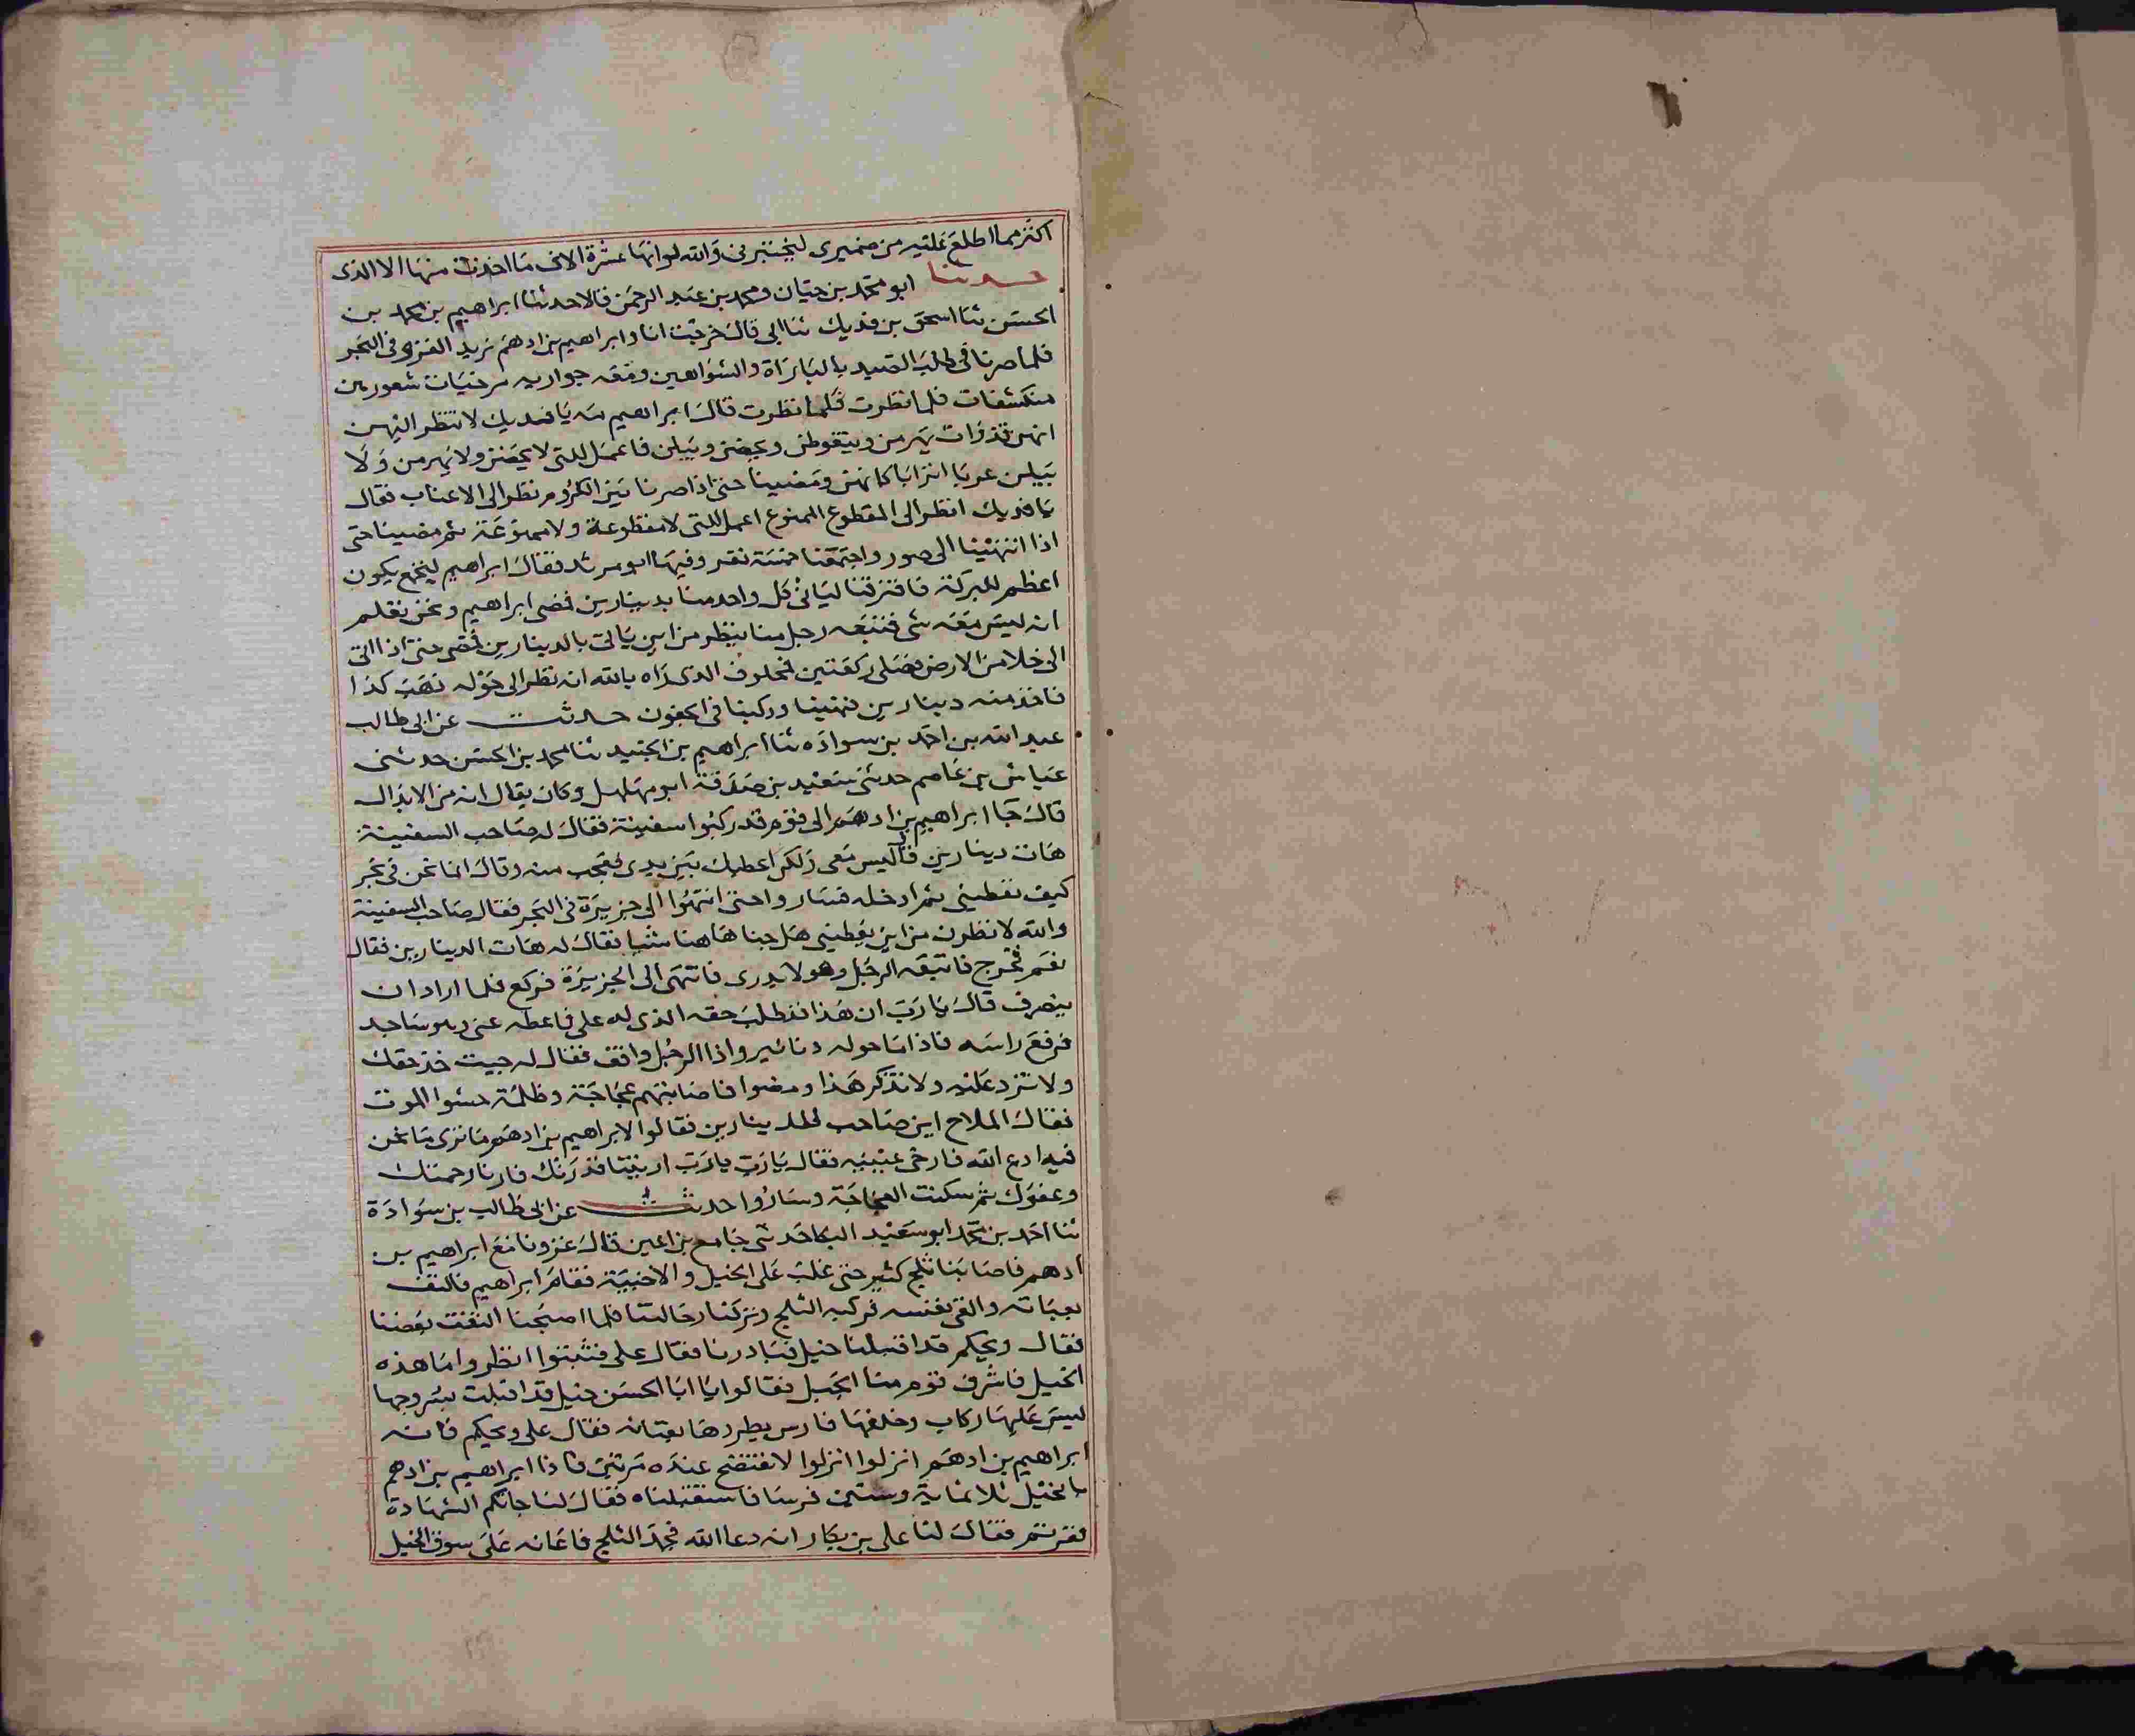 اكثر مما اطلع عليه من ضميرى ليختبرنى والله لو انها عشرة الاف ما اخذت منها الا الذى
حدثنا ابو محمد بن حيان ومحمد بن عبد الرحمن قالا حدثنا ابراهيم بن محمد بن
الحسن ثنا اسحق بن فديك ثنا ابى قال خرجت انا وابراهيم بن ادهم نريد الغزو فى البحر
فلما صرنا فى طلب الصيد بالبازاة والشواهين ومعه جواريه مرخيات شعورهن
منكشفات فلما نظرت فلما نظرت قال ابراهيم مه يا فديك لا تنظر اليهن
انهن قذرات يهرمن ويتغوطن ويحضن ويبلن فاعمل للتى لا يحضن ولا يهرمن ولا
يبلن عربا اترابا كانهن ومضينا حتى اذا صرنا بين الكروم نظر الى الاعناب فقال
يا فديك انظر الى المقطوع الممنوع اعمل للتى لا مقطوعة ولا ممنوعة ثم مضينا حتى
اذا انتهينا الى صور واجتمعنا خمسة نفر وفيها ابو مرثد فقال ابراهيم ليخمع يكون
اعظم للبركة فافترقنا ليأتى كل واحد منا بدينارين فمضى ابراهيم ونحن نعلم
انه ليس معه شى فتبعه رجل منا ينظر من اين ياتى بالدينارين فمضى حتى اذا اتى
الى خلا من الارض فصلى ركعتين فحلوف الذى رآه بالله ان نظر الى حوله ذهب كذا
فاخذ منه دينارين فتهيينا وركبنا فى الجفون حدثت عن ابى طالب
عبد الله بن احمد بن سوادة ثنا ابراهيم بن الجنيد ثنا محمد بن الحسن حدثنى
عياش بن عاصم حدثنى سعيد بن صدقة ابو مهلهل وكان يقال انه من الابدال
قال جا ابراهيم بن ادهم الى قوم قد ركبوا سفينة فقال له صاحب السفينة
هات دينارين قال ليس معى ولكن اعطيك بين يدى فعجب منه وقال انما نحن فى بحر
كيف تعطينى ثم ادخله فساروا حتى انتهوا الى جزيرة فى البحر فقال صاحب السفينة
والله لانظرن من اين يعطينى هل خبا هاهنا شيا فقال له هات الدينارين فقال
نعم فخرج فاتبعه الرجل وهو لا يدرى فانتهى الى الجزيرة فركع فلما اراد ان
ينصرف قال يا رب ان هذا قد طلب حقه الذى له على فاعطه عنى وهو ساجد
فرفع راسه فاذا ما حوله دنانير واذا الرجل واقف فقال له جيت خذ حقك
ولا تزد عليه ولا تذكر هذا ومضوا فاصابتهم عجاجة وظلمة حسوا الموت
فقال الملاح اين صاحب الدينارين فقالوا لابراهيم بن ادهم ما ترى ما نحن
فيه ادع الله فارخى عينيه فقال يا رب يا رب اريتنا قدرتك فارنا رحمتك
وعفوك ثم سكنت العجاجة وساروا حدثت عن ابى طالب بن سوادة
ثنا احمد بن محمد ابو سعيد البكا حدثنى جامع بن اعين قال غزونا مع ابراهيم بن
ادهم فاصابنا ثلج كثير حتى غلب على الخيل والاخبية فقام ابراهيم فالتف
بعباته والقى نفسه فركبه الثلج وتركنا رحالتنا فلما اصبحنا التفت بعضنا
فقال ويحكم قد اقبلنا خيل فبادرنا فقال على فتثبتوا انظروا ما هذه
الخيل فاشرف قوم منا الجبل فقالوا يا ابا الحسن خيل قد اقبلت بسروجها
ليس عليها ركاب وخلفها فارس يطردها بعتانه فقال على ويحكم فانه
ابراهيم بن ادهم انزلوا انزلوا لا نفتضح عنده مرتين فاذا ابراهيم بن ادهم
بالخيل ثلاثماية وستين فرسا فاستقبلناه فقال لنا جاتكم الشهادة
ففرتم فقال لنا على بن بكار انه دعا الله فجمد الثلج فاعانه على سوق الخيل